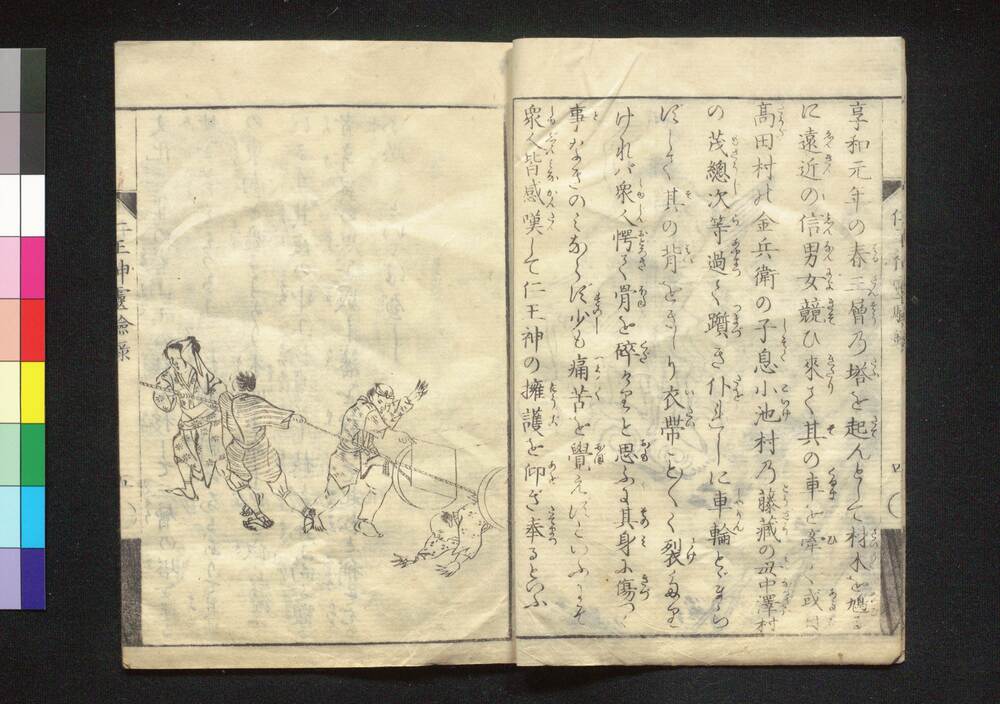 享和元年の春三層乃塔を起んとして材木を鳩る
に遠近の信男女競ひ來りて其の車を牽く或は
高田村の金兵衛の子息小池村乃藤蔵の中澤村
の茂總次等過て躓き仆れしに車輪とゞまらずして其の背をきしり衣帶ことごとく裂たり
けれバ衆人愕て骨を碎けりと思ふに其身に傷つく
事なきのみならず少も痛苦を覺えずといふにそ
衆人皆感嘆して仁王神の擁護を仰ぎ奉るといふ
仁王神靈驗錄